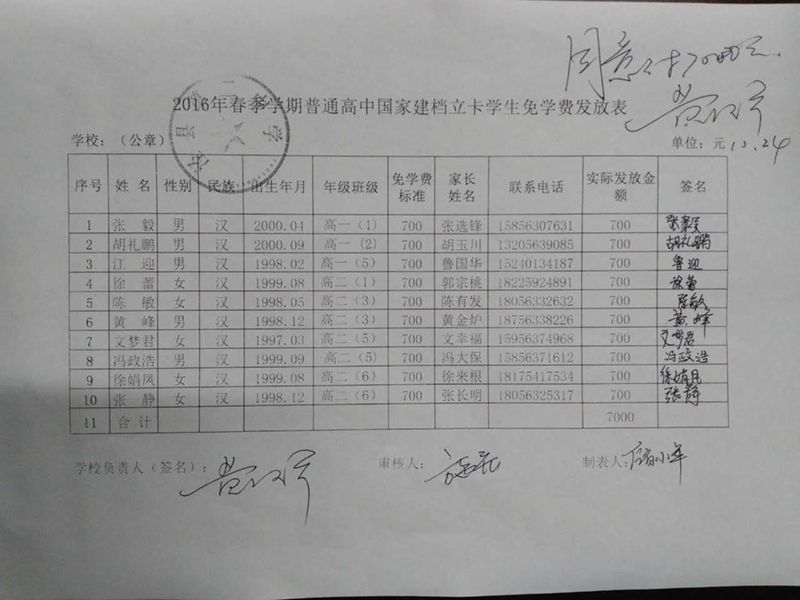 同意付7000元.
2016年春季学期普通高中国家建档立卡学生免学费发放表
学校：（公章） 单位：元 10.24
序号 姓 名 性别 民族 出生年月 年级班级 免学费标准 家长姓名 联系电话 实际发放金额 签名
1 张 毅 男 汉 2000.04 高一（1） 700 张选锋 15856307631 700
2 胡礼鹏 男 汉 2000.09 高一（2） 700 胡玉川 13205639085 700 胡礼鹏
3 江 迎 男 汉 1998.02 高一（5） 700 鲁国华 15240134187 700 鲁迎
4 徐 蕾 女 汉 1999.08 高二（1） 700 郭宗桃 18225924891 700 徐蕾
5 陈 敏 女 汉 1998.05 高二（3） 700 陈有发 18056332632 700 陈敏
6 黄 峰 男 汉 1998.12 高二（3） 700 黄金炉 18756338226 700 黄峰
7 文梦君 女 汉 1997.03 高二（5） 700 文幸福 15956374968 700 文梦君
8 冯政浩 男 汉 1999.09 高二（5） 700 冯大保 15856371612 700 冯政浩
9 徐娟凤 女 汉 1999.08 高二（6） 700 徐来根 18175417534 700 徐娟凤
10 张 静 女 汉 1998.12 高二（6） 700 张长明 18056325317 700 张静
11 合 计 7000
学校负责人（签名）： 审核人： 制表人：